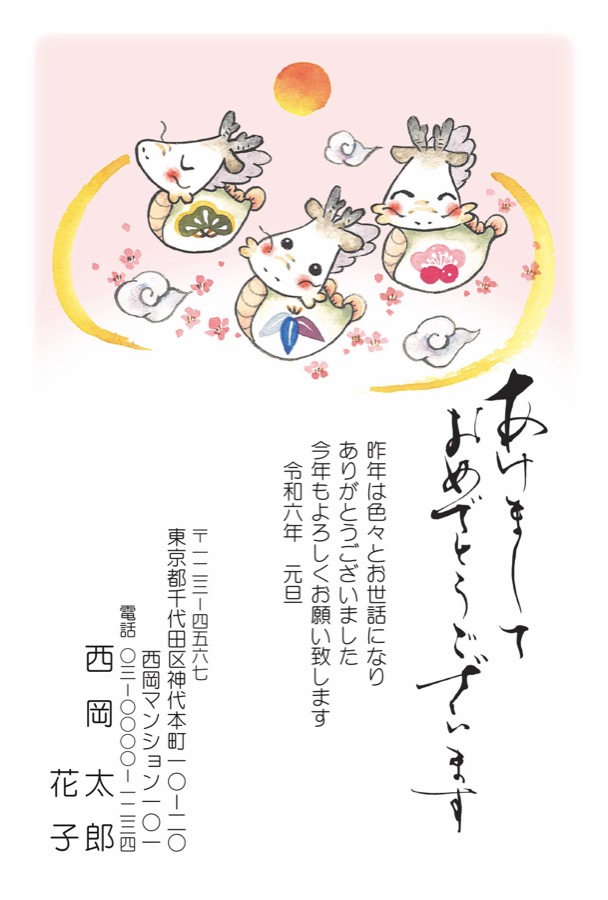 あけまして
おめでとうございます
昨年は色々とお世話になり
ありがとうございました
今年もよろしくお願い致します
令和六年　元旦
〒一二三ー四五六七
東京都千代田区神代本町一〇ー二〇
西岡マンション一〇一
電話　〇三ー〇〇〇〇ー一二三四
西岡　太郎
花子